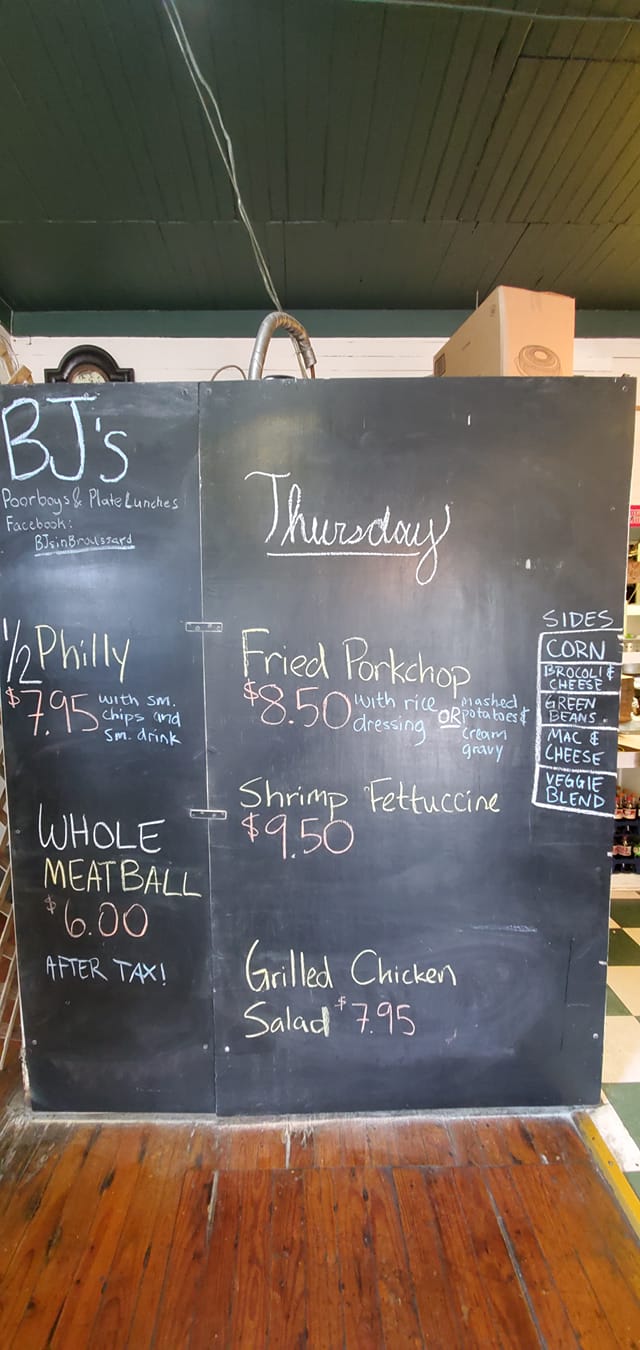 BJ's
Poorboys & Plate Lunches
Facebook:
BJsinBroussard
1/2 Philly
$7.95 with sm.
chips and
sm. drink
WHOLE
MEATBALL
$6.00
AFTER TAX!
Thursday
Fried Porkchop
$8.50 with rice
dressing
OR
mashed
potatoes &
cream
gravy
Shrimp Fettuccine
$9.50
Grilled Chicken
Salad $7.95
SIDES
CORN
BROCOLI &
CHEESE
GREEN
BEANS
MAC &
CHEESE
VEGGIE
BLEND